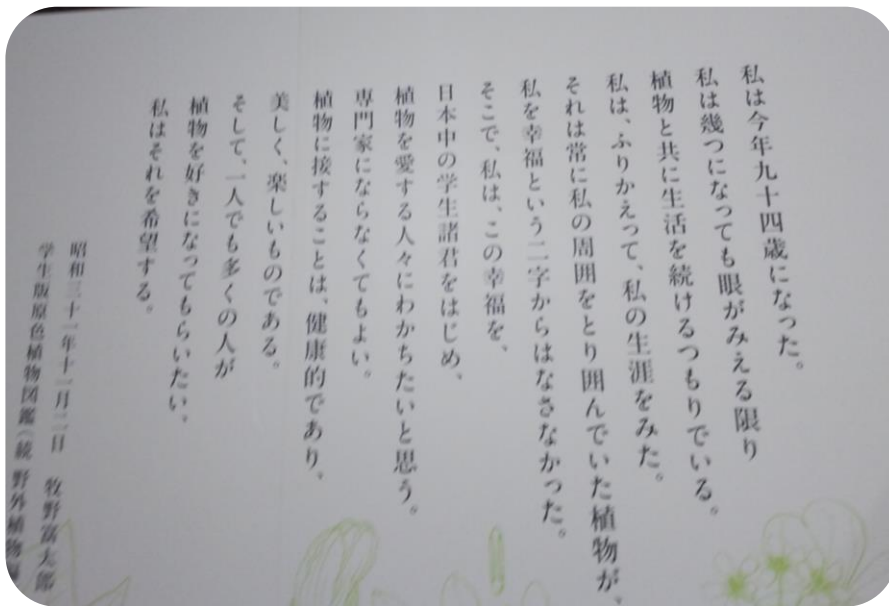 私は今年九十四歳になった。
私は幾つになっても眼がみえる限り
植物と共に生活を続けるつもりでいる。
私は、ふりかえって、私の生涯をみた。
それは常に私の周囲をとり囲んでいた植物が、
私を幸福という二字からはなさなかった。
そこで、私は、この幸福を、
日本中の学生諸君をはじめ、
植物を愛する人々にわかちたいと思う。
専門家にならなくてもよい。
植物に接することは、健康的であり、
美しく、楽しいものである。
そして、一人でも多くの人が
植物を好きになってもらいたい。
私はそれを希望する。
昭和三十一年十一月二日 牧野富太郎
学生版原色植物図鑑(続 野外植物